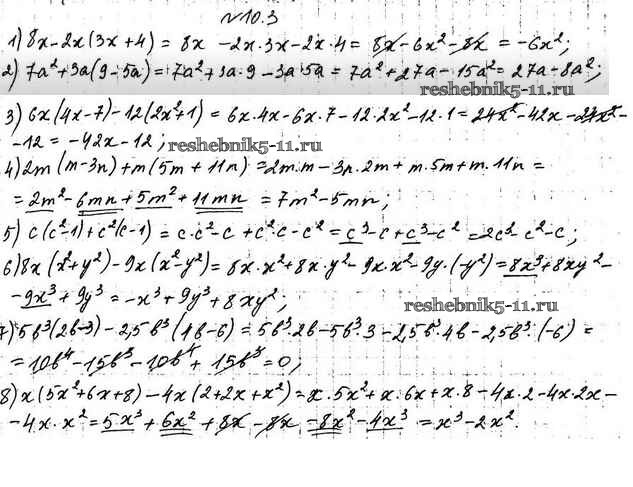 №10.3
1) 8x-2x(3x+4) = 8x -2x·3x-2x·4 = 8x-6x²-8x = -6x²;
2) 7a²+3a(9-5a)=7a²+3a·9-3a·5a = 7a²+27a-15a²=27a-8a²;
reshebnik5-11.ru
3) 6x(4x-7)-12(2x²+1) = 6x·4x-6x·7-12·2x²-12·1=24x²-42x-24x²-
-12 = -42x-12; reshebnik5-11.ru
4) 2m(m-3n)+m(5m+11n)=2m·m-3n·2m+m·5m+m·11n =
= 2m²-6mn+5m²+11mn = 7m²-5mn;
5) c(c²-1)+c²(c-1) = c·c²-c+c²·c-c² = c³-c+c³-c² =2c³-c²-c;
6) 8x(x²+y²)-9x(x²-y²)=8x·x²+8x·y²-9x·x²-9y·(-y²)=8x³+8xy²-
-9x³+9y³=-x³+9y³+8xy²;
reshebnik5-11.ru
7) 5b³(2b-3)-2,5b³(4b-6) = 5b³·2b-5b³·3-2,5b³·4b-2,5b³·(-6) =
= 10b⁴-15b³-10b⁴+15b³=0;
8) x(5x²+6x+8)-4x(2+2x+x²)=x·5x²+x·6x+x·8-4x·2-4x·2x-
-4x·x²=5x³+6x²+8x-8x-8x²-4x³ =x³-2x².